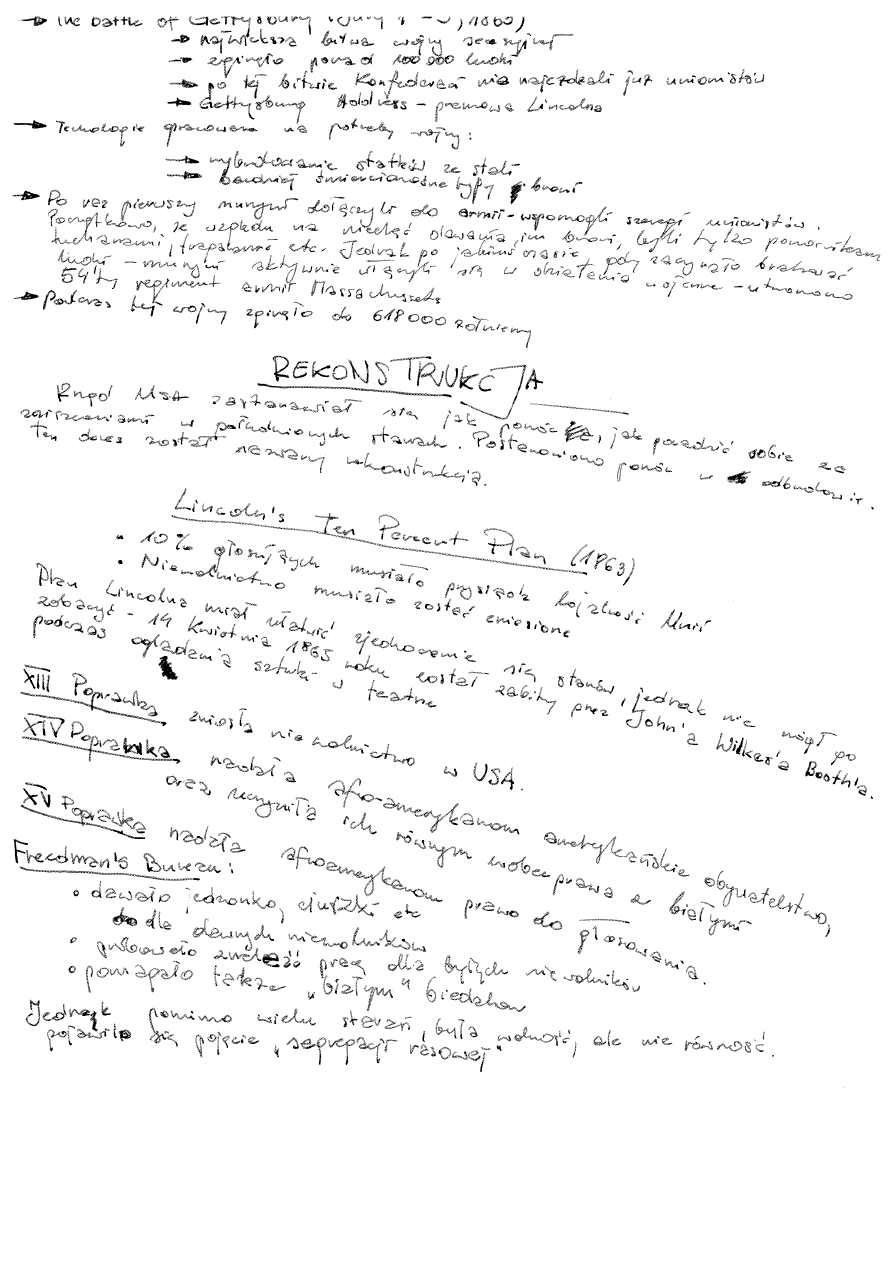 → The battle of Gettysburg (July 1 – 3, 1863)
→ największa bitwa wojny secesyjnej
→ zginęło ponad 100 000 ludzi
→ po tej bitwie Konfederaci nie najeżdżali już unionistów
→ Gettysburg Address – przemowa Lincolna
→ Technologie opracowane na potrzeby wojny:
→ wybudowanie statków ze stali
→ bardziej śmiercionośne typy broni
→ Po raz pierwszy murzyni dołączyli do armii – wspomogli szeregi unionistów.
Początkowo, ze względu na niechęć dawania im broni, byli tylko pomocnikami
kucharzami, trębaczami etc. Jednak po jakimś czasie gdy zaczynało brakować
ludzi – murzyni aktywnie włączyli się w działania wojenne – utworzono
54'ty regiment armii Massachusets
→ Podczas tej wojny zginęło do 618 000 żołnierzy
REKONSTRUKCJA
Rząd USA zastanawiał się jak pomóc, jak poradzić sobie ze
zniszczeniami w południowych stanach. Postanowiono pomóc w odbudowie.
Ten okres został nazwany rekonstrukcją.
Lincoln's Ten Percent Plan (1863)
• 10% głosujących musiało przysiąc lojalność Unii
• Niewolnictwo musiało zostać zniesione
Plan Lincolna miał ułatwić zjednoczenie się stanów, jednak nie mógł go
zobaczyć – 14 Kwietnia 1865 roku został zabity przez John'a Wilkes'a Booth'a.
podczas oglądania sztuki w teatrze
XIII Poprawka zniosła niewolnictwo w USA.
XIV Poprawka nadała afro-amerykanom amerykańskie obywatelstwo,
oraz uczyniła ich równym wobec prawa z białymi
XV Poprawka nadała afroamerykanom prawo do głosowania.
Freedman's Bureau:
• dawało jedzonko, ciuszki etc
dla dawnych niewolników
• próbowało znaleźć pracę dla byłych niewolników
• pomagało także „białym" biedakom
Jednak pomimo wielu starań, była wolność, ale nie równość.
pojawiło się pojęcie „segregacji rasowej"